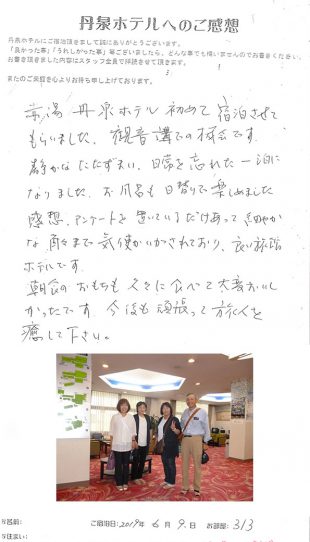 丹泉ホテルへのご感想
丹泉ホテルにご宿泊頂きまして誠にありがとうございます。
「良かった事」「うれしかった事」等ございましたら、どんな事でも構いませんのでお書きください。
お書き頂きました内容はスタッフ全員で拝読させて頂きます。
またのご来館を心よりお待ち申し上げております。
丹泉ホテル 初めて宿泊させて
もらいました。観音講での
静かなたたずまい、日常を忘れた一泊に
なりました。お風呂も日替りで楽しめました
感想、アンケートを置いているだけあって細やか
な角々まで気使いがされており、良い旅館
ホテルです。
朝食のおもちも久々に食べて大変おいし
かったです。今後も頑張って旅人を
癒して下さい。
お名前:
ご宿泊日:2019年 6月 9日 お部屋:313
お住まい: